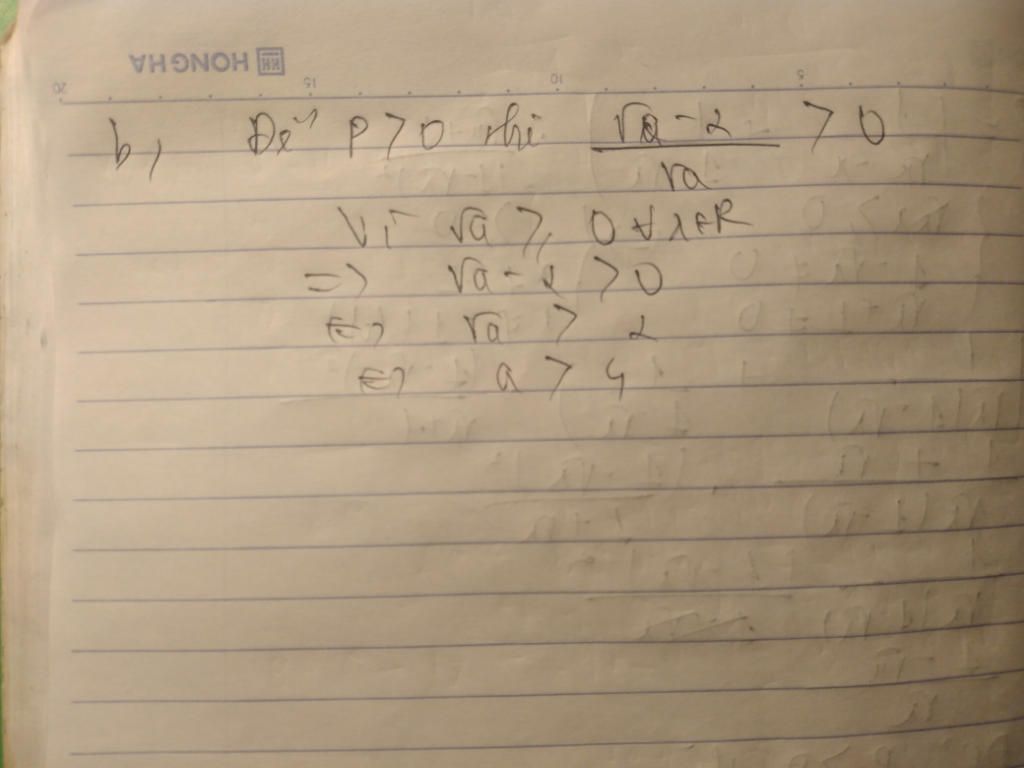 HONG HA
20 15 10 5
b, Để P > 0 thì (√a - 2)/√a > 0
Vì √a ≥ 0 ∀ x ∈ R
=> √a - 2 > 0
<=> √a > 2
<=> a > 4